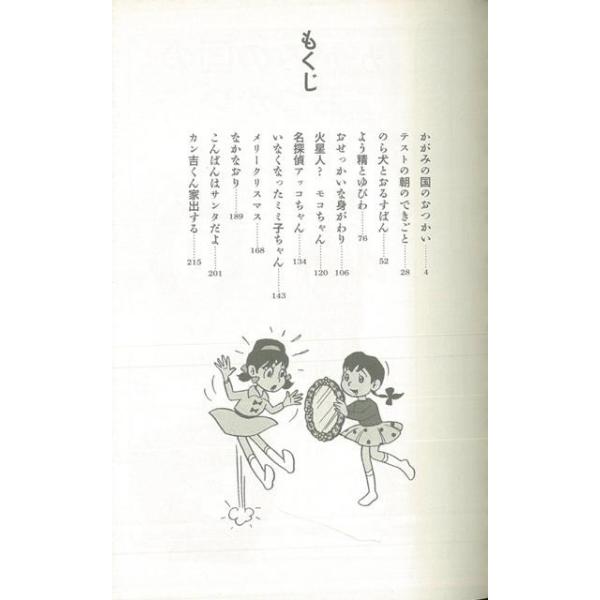 もくじ
かがみの国のおつかい……4
テストの朝のできごと……28
のら犬とおるすばん……52
よう精とゆびわ……76
おせっかいな身がわり……106
火星人？　モコちゃん……120
名探偵アッコちゃん……134
いなくなったミミ子ちゃん……143
メリークリスマス……168
なかなおり……189
こんばんはサンタだよ……201
カン吉くん家出する……215